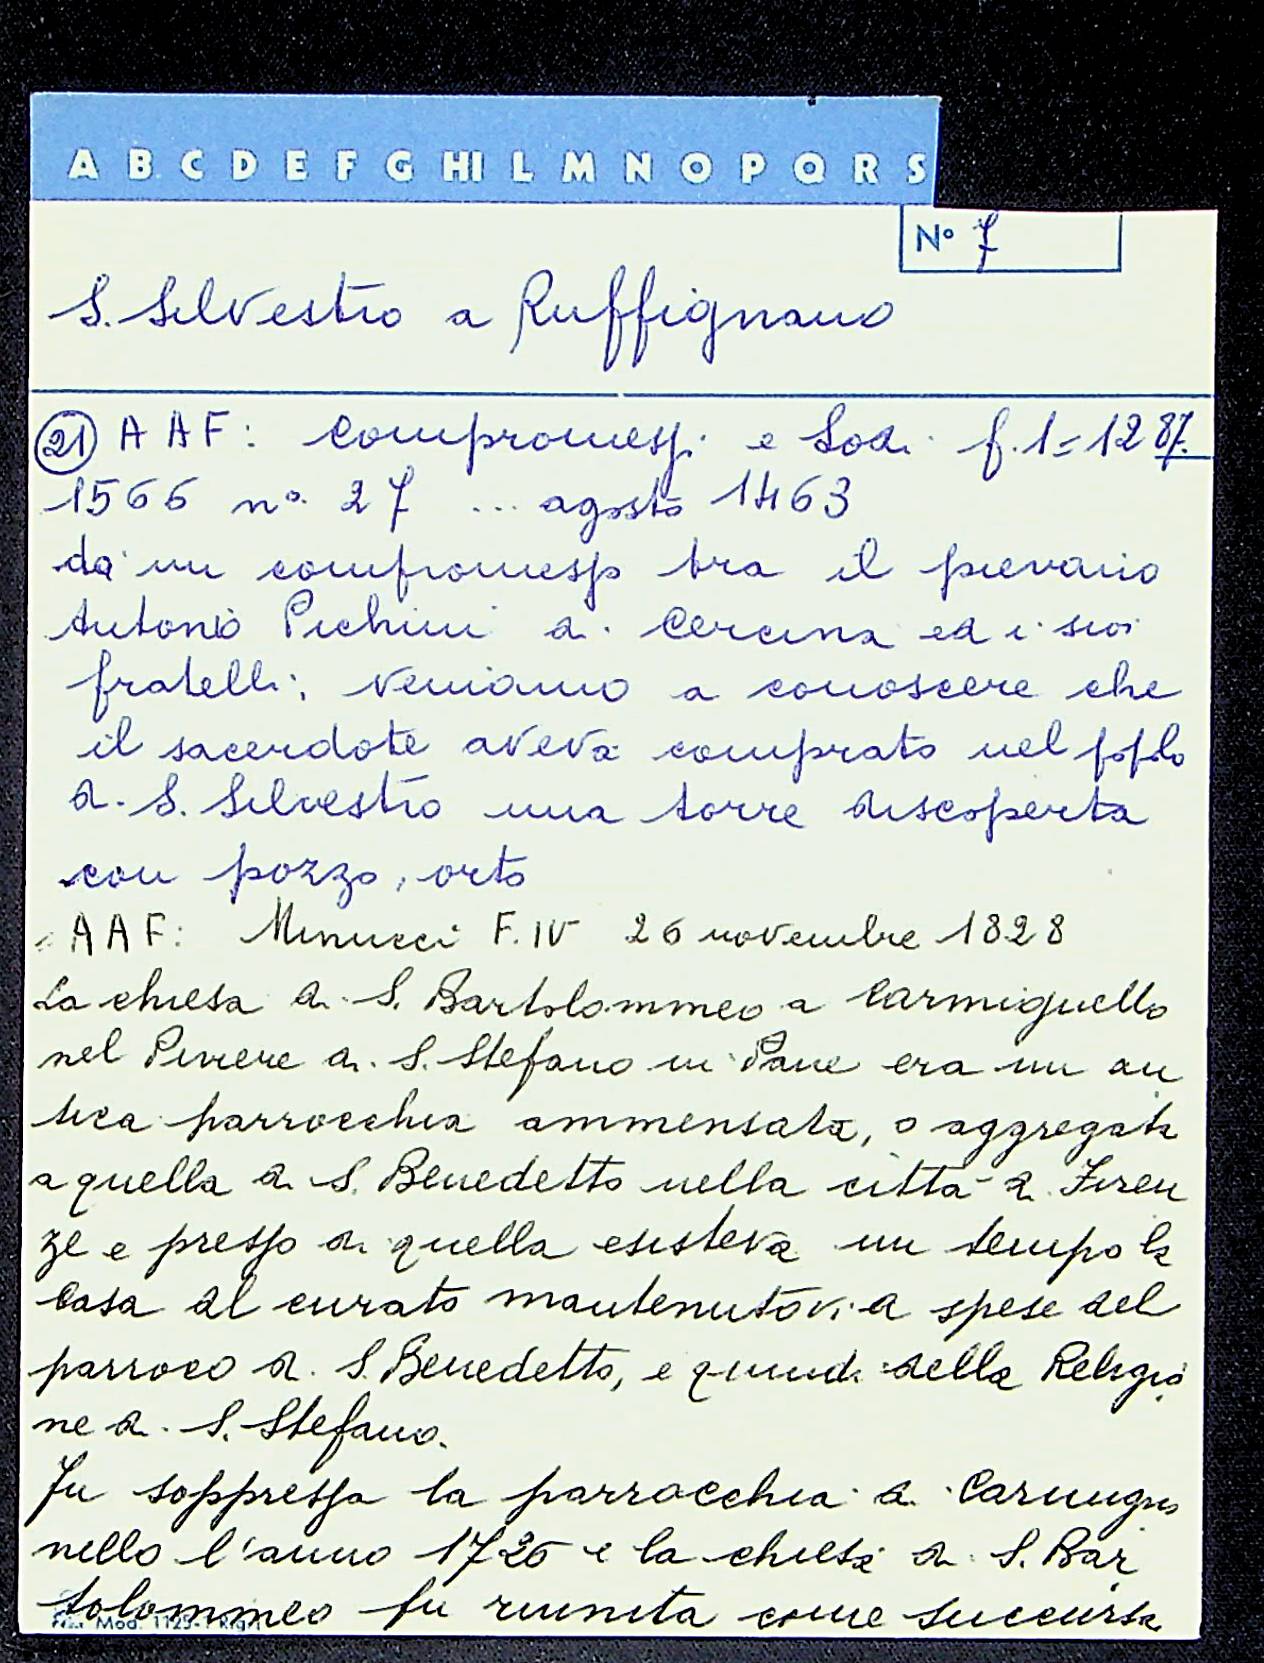 A B C D E F G HI L M N O P Q R S
N° 7
S. Silvestro a Ruffignano
21 AAF: Compromessi e Lodi f. 1=1287.
1566 n° 27 ... agosto 1463
da un compromesso tra il pievano
Antonio Pichini di Cercina ed i suoi
fratelli; veniamo a conoscere che
il sacerdote aveva comprato nel popolo
di S. Silvestro una torre discoperta
con pozzo, orto
AAF: Minucci F. IV 26 novembre 1828
La chiesa di S. Bartolommeo a Carmignello
nel Piviere di S. Stefano in Pane era un an
tica parrocchia ammensata, o aggregata
a quella di S. Benedetto nella città di Firen
ze e presso di quella esisteva un tempo la
Casa del curato mantenutovi a spese del
parroco di S. Benedetto, e quindi della Religio
ne di S. Stefano.
Fu soppressa la parrocchia di Carmig
nello l'anno 1726 e la chiesa di S. Bar
tolommeo fu riunita come succursa
Mod. 1125-1 Rig.